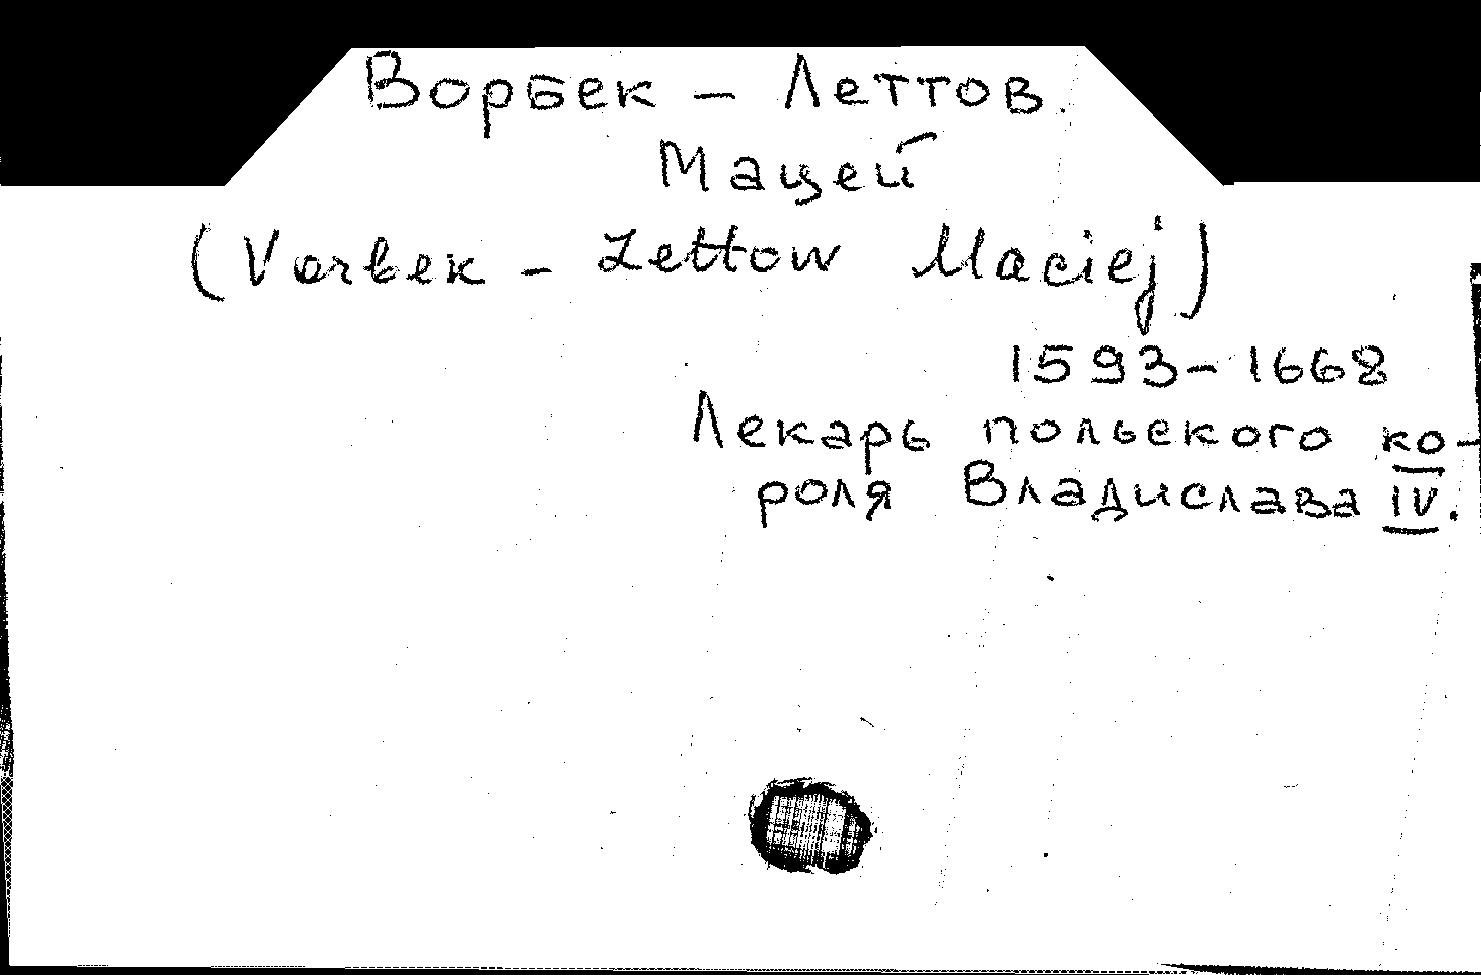 Ворбек - Леттов.
Мацей
(Vorbek - Lettow Maciej)
1593-1668
Лекарь польского ко-
роля Владислава IV.